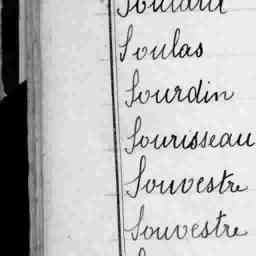 Soulard
Soulas
Sourdin
Sourisseau
Souvestre
Souvestre